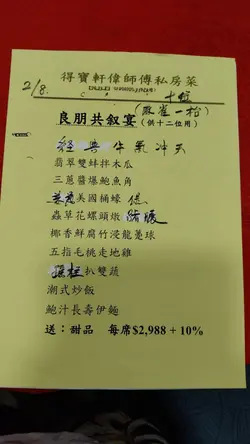 得寶軒偉師傅私房菜
2/8.
十位
(麻雀一枱)
良朋共叙宴 (供十二位用)
牛氣冲天
翡翠雙蚌拌木瓜
三蔥醬爆鮑魚角
美國桶蠔
蟲草花螺頭燉
椰香鮮腐竹浸龍躉球
五指毛桃走地雞
扒雙蔬
潮式炒飯
鮑汁長壽伊麵
送：甜品 每席$2,988 + 10%